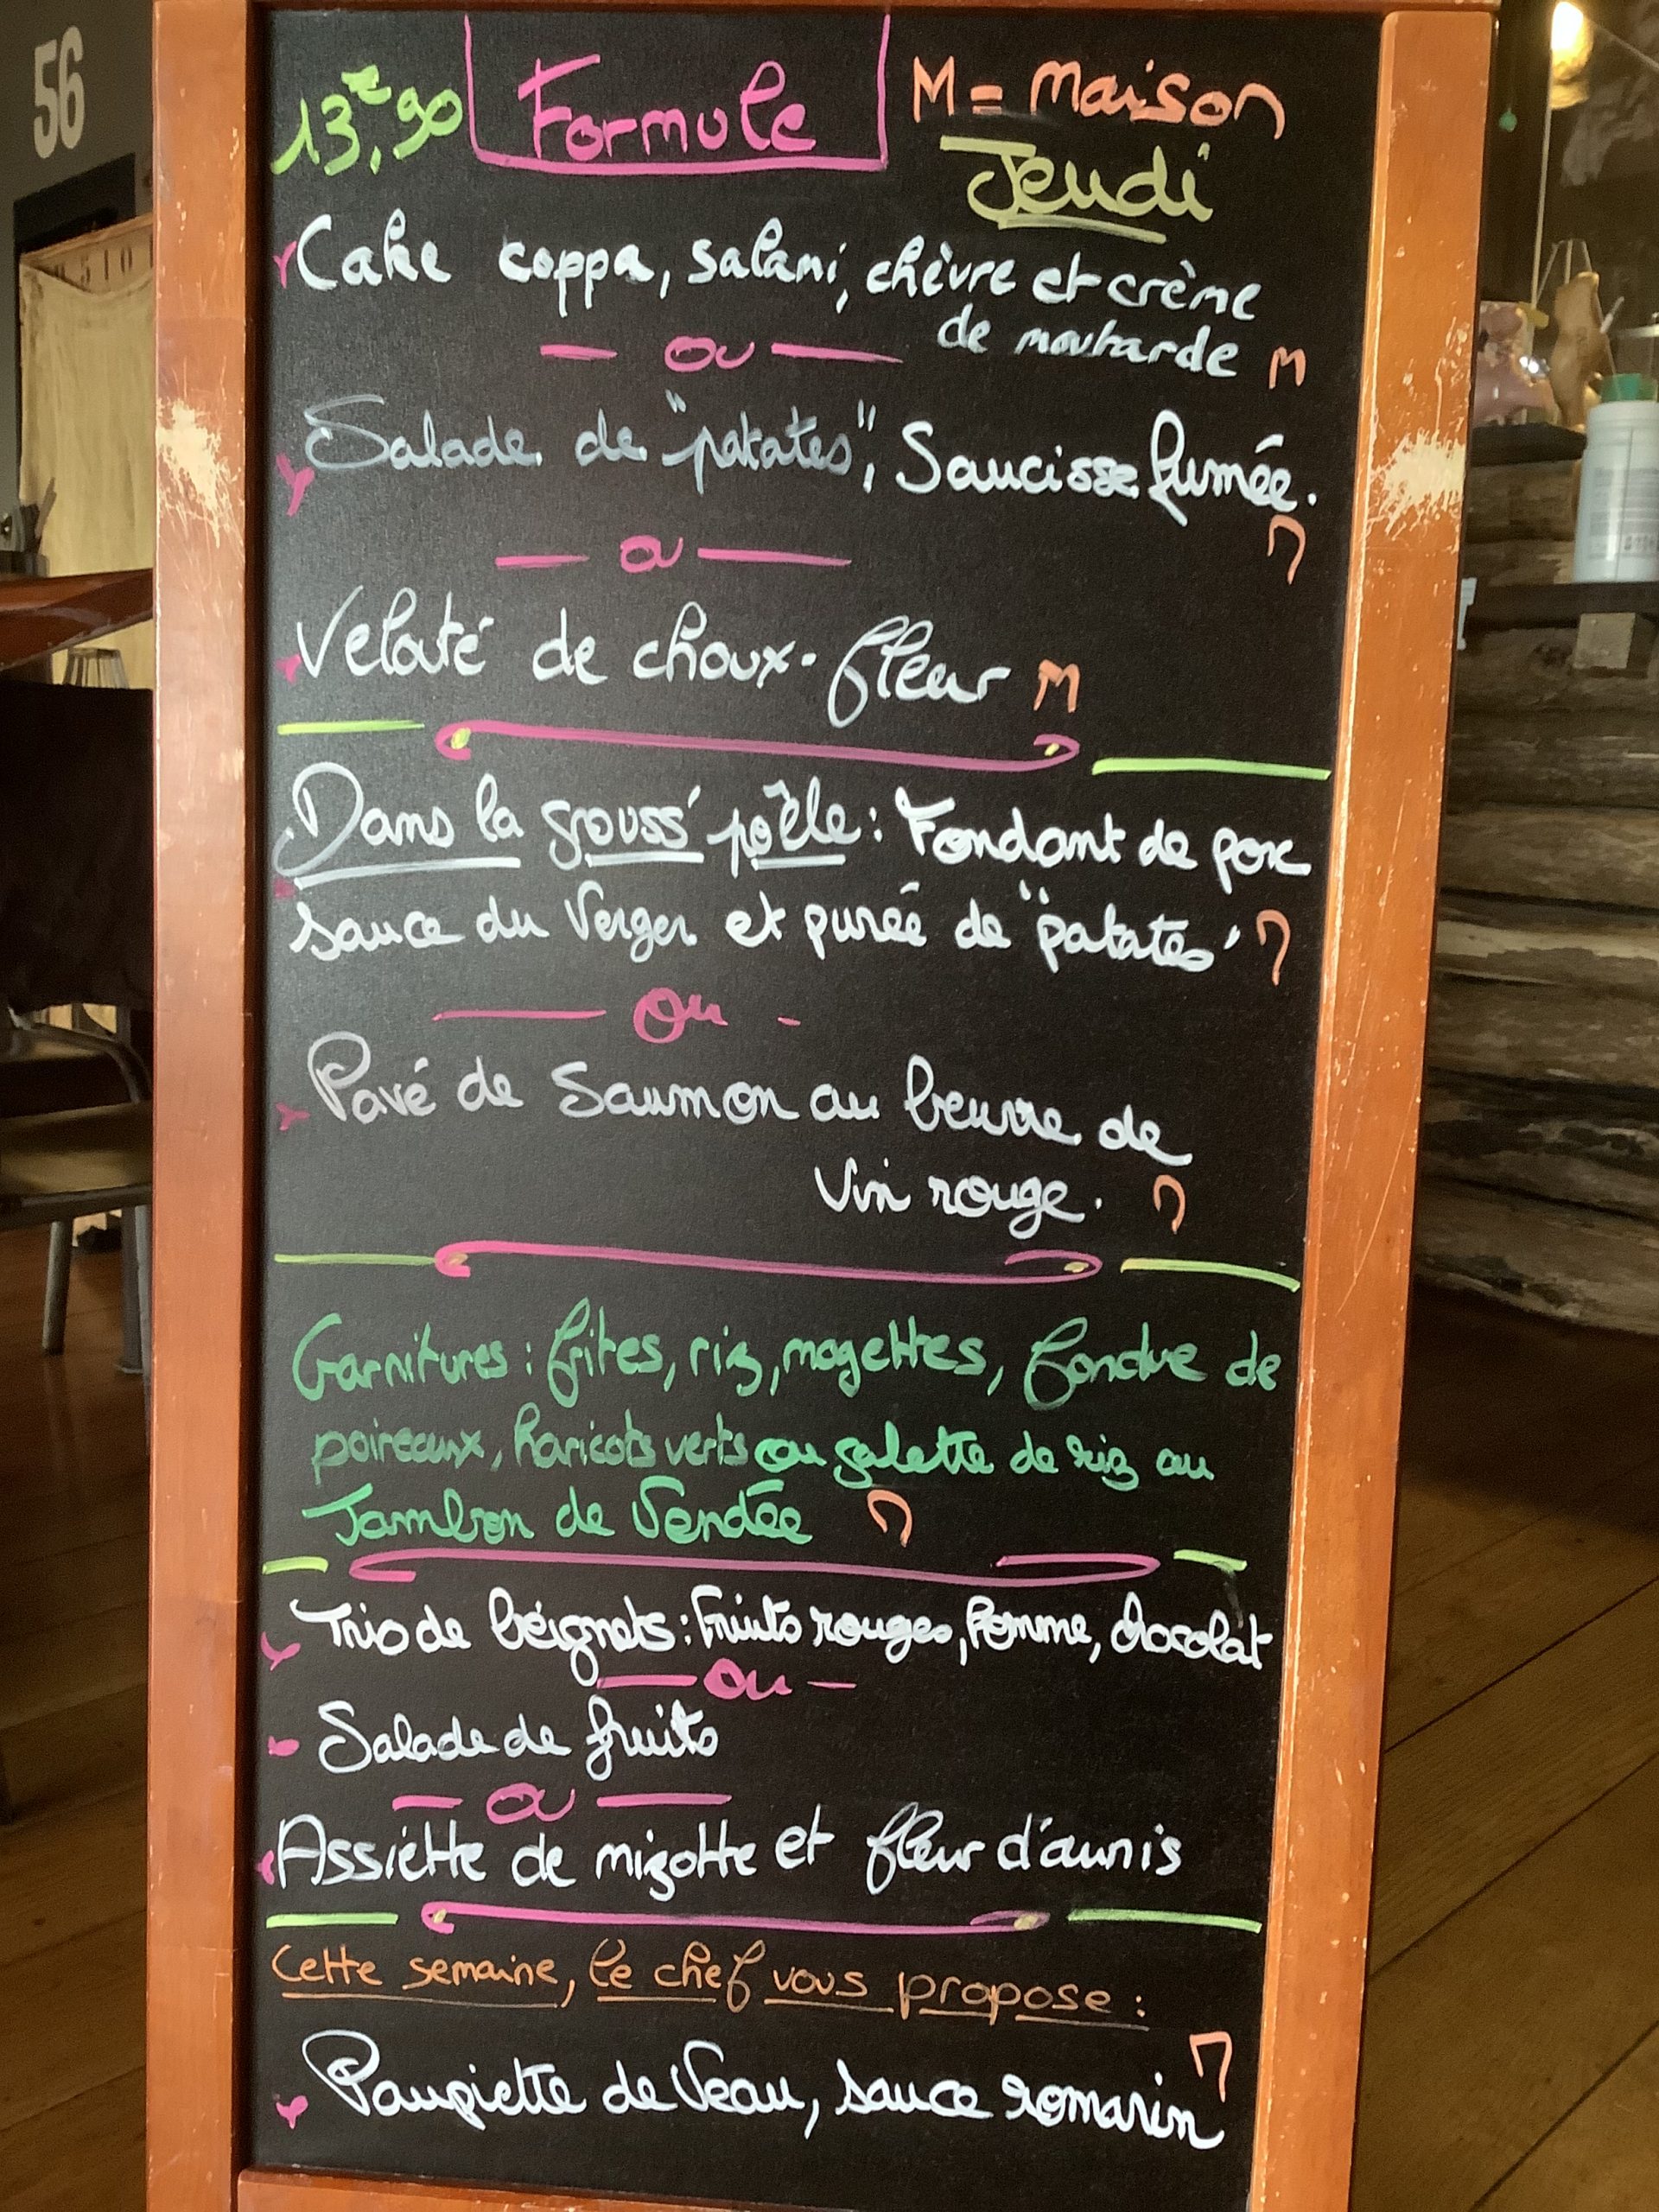 56
13,€90 Formule M = Maison
Jeudi
Cake coppa, salami, chèvre et crème
de moutarde M
— ou —
Salade de "patates", Saucisse fumée.
M
— ou —
Velouté de choux-fleur M
Dans la grouss' poêle : Fondant de porc
sauce du Verger et purée de "patates" M
— Ou -
Pavé de Saumon au beurre de
Vin rouge. M
Garnitures : frites, riz, mogettes, fondue de
poireaux, haricots verts ou galette de riz au
Jambon de Vendée M
Trio de beignets : Fruits rouges, Pomme, chocolat
— Ou —
- Salade de fruits
— Ou —
Assiette de mizotte et fleur d'aunis
Cette semaine, le chef vous propose :
M
Paupiette de Veau, sauce romarin